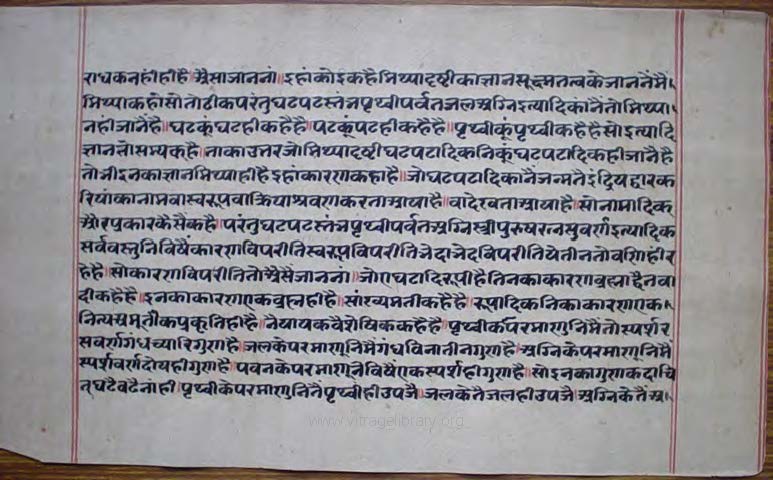 राधकनहीहीहै॥ऐसाजाननां॥इहांकोइकहैमिथ्यादृष्टीकाज्ञानसूक्ष्मतत्वकेजाननेंमैं
मिथ्याकहोसोतोठीकपरंतुघटपटस्तंभपृथ्वीपर्वतजलअग्निइत्यादिकांनैतोमिथ्या
नहींजानैहै॥घटकूंघटहीकहैहै॥पटकूंपटहीकहैहै॥पृथ्वीकूंपृथ्वीकहैहैसोइत्यादि
ज्ञानतोसम्यकहै॥ताकाउत्तरजोमिथ्यादृष्टीघटपटादिकनिकूंघटपटादिकहीजानैहै
तोभीइनकाज्ञानमिथ्याहीहैइहांकारणकहाहै॥जोघटपटादिकांनैंजन्मतैइंद्रियद्वारक
रियांकानामवास्वरूपवाक्रियाश्रवणकरताआयाहै॥वादेखताआयाहै॥सोनामादिक
औरप्रकारकैसैंकहै॥परंतुघटपटस्तंभपृथ्वीपर्वतअग्निस्त्रीपुरुषरत्नसुवर्णइत्यादिक
सर्ववस्तुनिविषैंकारणविपरीतिस्वरूपविपरीतिभेदाभेदविपरीतियेतीनतोवणिहींर
हेहै॥सोकारणविपरीतितोऐसैंजाननां॥जोएघटादिरूपीहैतिनकाकारणब्रह्माद्वैतवा
दीकहैहै॥इनकाकारणएकब्रह्महीहै॥सांख्यमतीकहैहै॥रूपादिकनिकाकारणएक
नित्यअमूर्तीकप्रकृतिहीहै॥नैयायकवैशेषिककहैहै॥पृथ्वीकेपरमाणूनिमैंतोस्पर्शर
सवर्णगंधच्यारिगुणहै॥जलकेंपरमाणूनिमैगंधविनातीनगुणहै॥अग्निकेपरमाणूनिमैं
स्पर्शवर्णदोयहीगुणहै॥पवनकेपरमाणूनिविषैएकस्पर्शहीगुणहै॥सोइनकागुणकदाचि
त्घटैवढैनांही॥पृथ्वीकेपरमाणूनितैपृथ्वीहीउपजै॥जलकेतैजलहीउपजै॥अग्निकेतैंअ
www.vitragelibrary.org